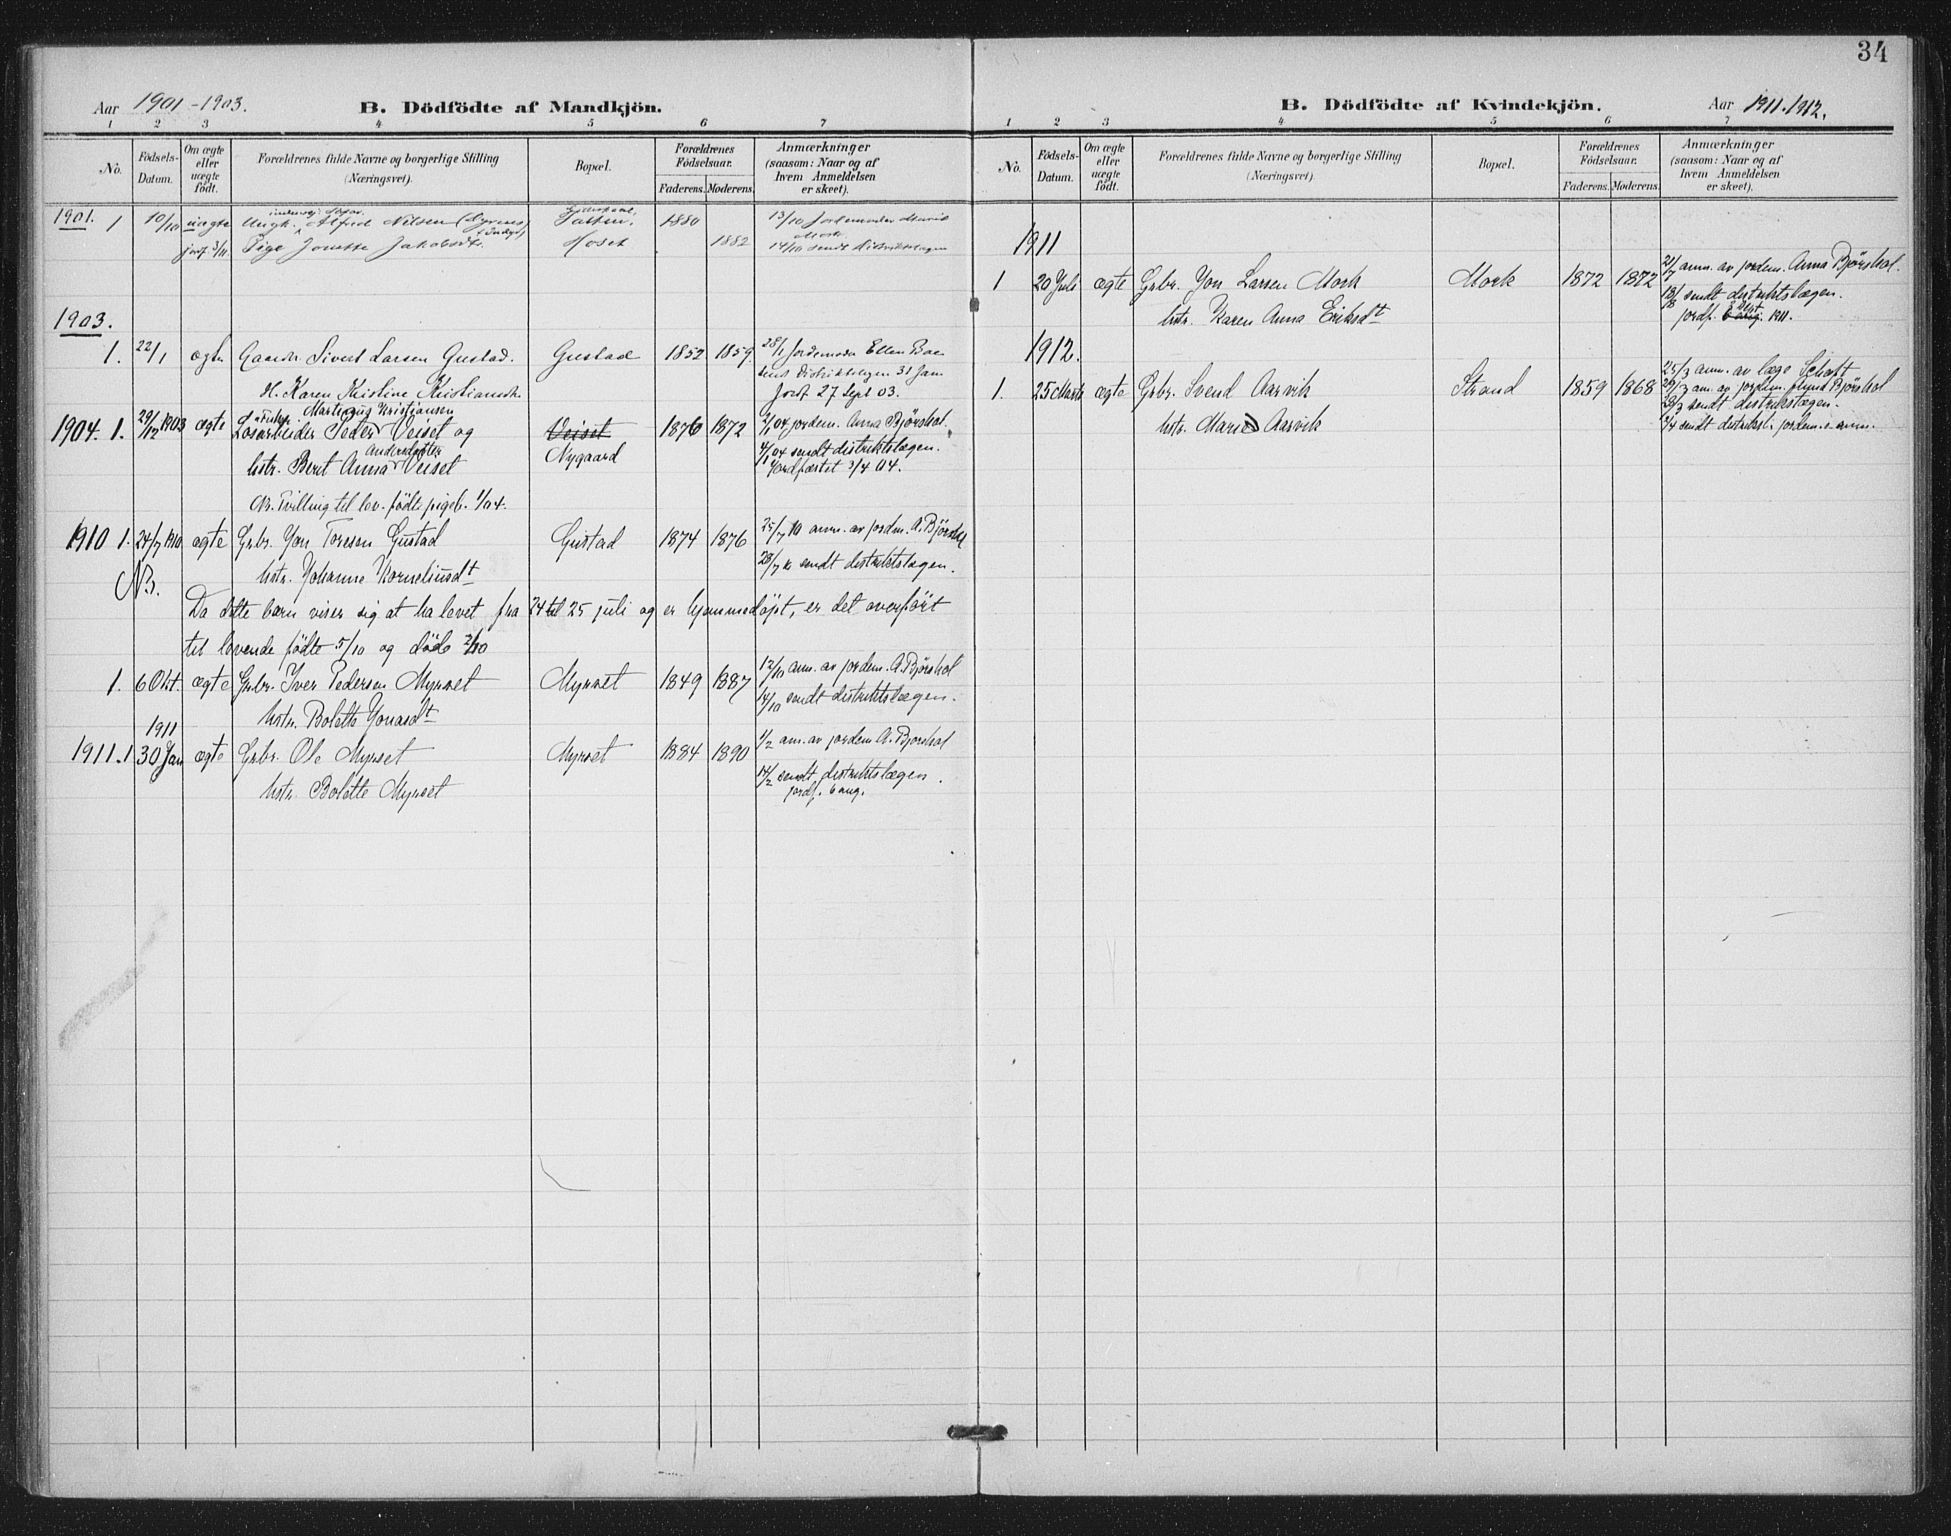 34
Aar 1901-1903. B. Dödfödte af Mandkjön.
1 2 3 4 5 6 7
No. Födsels-Datum. Om ægte eller uægte födt. Forældrenes fulde Navne og borgerlige Stilling (Næringsvei). Bopæl. Forældrenes Födselsaar. Faderens. Moderens. Anmærkninger (saasom: Naar og af hvem Anmeldelsen er skeet).
1901. 1 10/10 uægte Ungk. Alfred Nilsen 1880 13/10 Jordemoder
jordf. 3/11 Pige Jonette Jakobsdt. Moset 1882 14/10 sendt
1903.
1. 22/1 ægte Gaardbr. Sivert Larsen Gustad. Gustad 1852 1859 28/1 Jordemoder Ellen
H. Karen Kristine Kristiansdt. sendt Distriktslægen 31 Jan
Jordf. 27 Sept 03.
Martinus Kristiansen
1904. 1. 29/12 1903 ægte Løsarbeider Peder Veiset og Veiset 1876 1872 2/1 04 jordem. Anna Bjørshol.
Andersdatter
hstr. Berit Anna Veiset Nygaard 4/1 04 sendt distriktslægen.
Jordfæstet 3/4 04.
NB. Tvilling til lev. fødte pigeb. 1/04.
1910 1. 24/7 1910 ægte Grbr. Jon Toresen Gustad Gustad 1874 1876 25/7 10 anm. av jordm. A. Bjørshol
hstr. Johanne Korneliusdt 28/7 10 sendt distriktslægen.
NB.
Da dette barn viser sig at ha levet fra 24 til 25 juli og er hjemmedøpt, er det overført
til levende fødte 5/10 og døde 2/10
1. 6 Okt. ægte Grbr. Iver Pedersen Myrset Myrset 1849 1887 12/10 anm. av jordem. A. Bjørshol
hstr. Bolette Jonasdt 14/10 sendt distriktslægen.
1911
1911. 1 30 Jan ægte Grbr. Ole Myrset Myrset 1884 1890 1/2 anm. av jordem A. Bjørshol
hstr. Bolette Myrset 14/2 sendt distriktslægen.
jordf. 6 aug.
B. Dödfödte af Kvindekjön. Aar 1911-1912.
1 2 3 4 5 6 7
No. Födsels-Datum. Om ægte eller uægte födt. Forældrenes fulde Navne og borgerlige Stilling (Næringsvei). Bopæl. Forældrenes Födselsaar. Faderens. Moderens. Anmærkninger (saasom: Naar og af hvem Anmeldelsen er skeet).
1911
1 20 Juli ægte Grbr. Jon Larsen Mork Mork 1872 1872 21/7 anm. av jordem. Anna Bjørshol.
hstr. Karen Anna Eriksdt 18/8 sendt distriktslægen.
jordf. 1911.
1912.
25/3 anm. av læge Schatt
1. 25 Marts ægte Grbr. Svend Aarvik Strand 1859 1868 29/3 anm. av jordem. Bjørshol
hstr. Marie Aarvik 28/3 sendt distriktslægen.
4/4 sendt distriktsl. jordem.s anm.